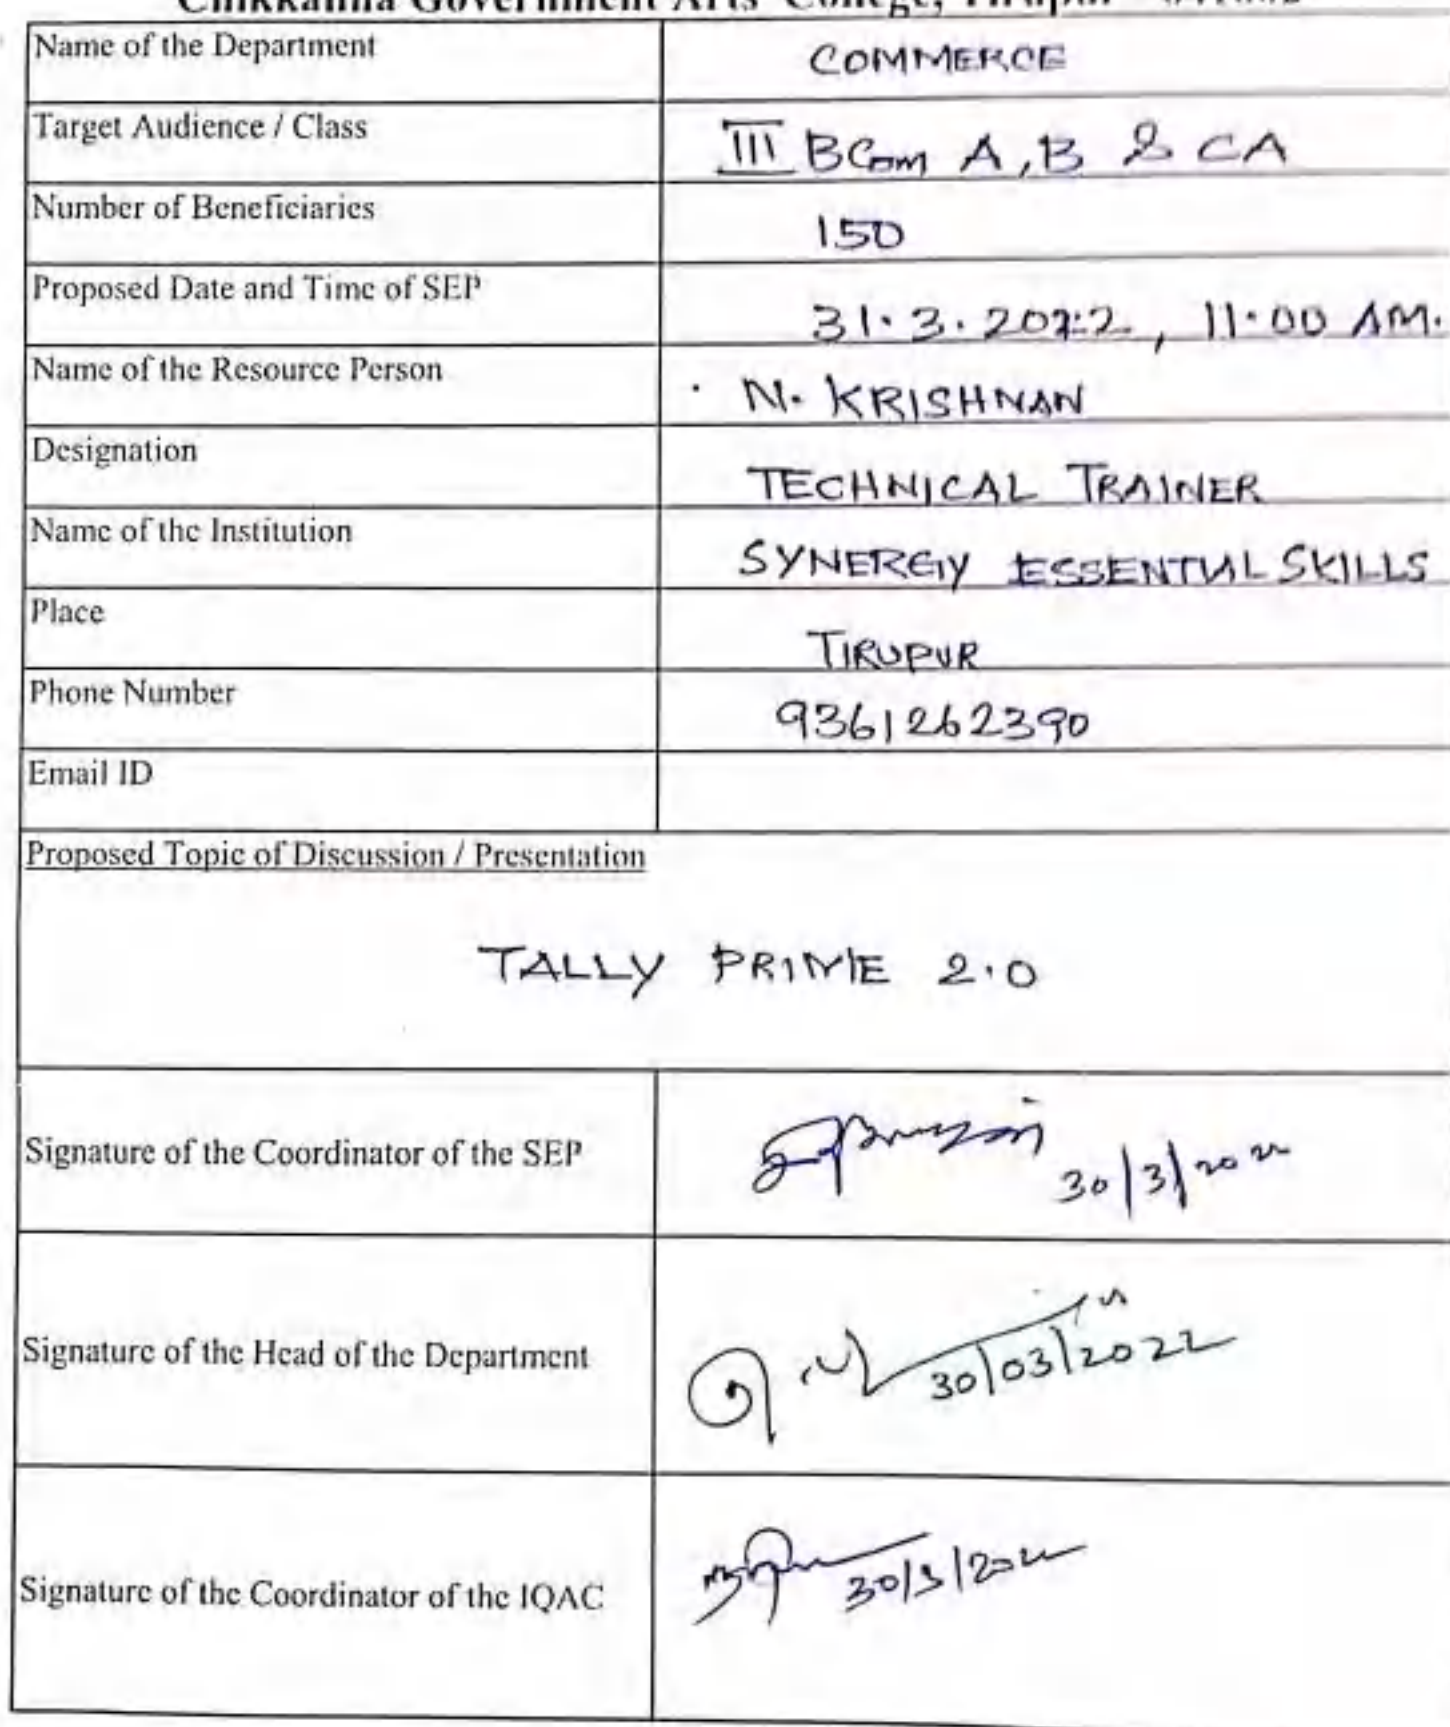 Chikkanna Government Arts College, Tirupur
Name of the Department COMMERCE
Target Audience / Class III BCom A, B & CA
Number of Beneficiaries 150
Proposed Date and Time of SEP 31.3.2022, 11.00 AM.
Name of the Resource Person N. KRISHNAN
Designation TECHNICAL TRAINER
Name of the Institution SYNERGY ESSENTIAL SKILLS
Place TIRUPUR
Phone Number 9361262390
Email ID
Proposed Topic of Discussion / Presentation
TALLY PRIME 2.0
Signature of the Coordinator of the SEP 30/3/2022
Signature of the Head of the Department 30/03/2022
Signature of the Coordinator of the IQAC 30/3/2022